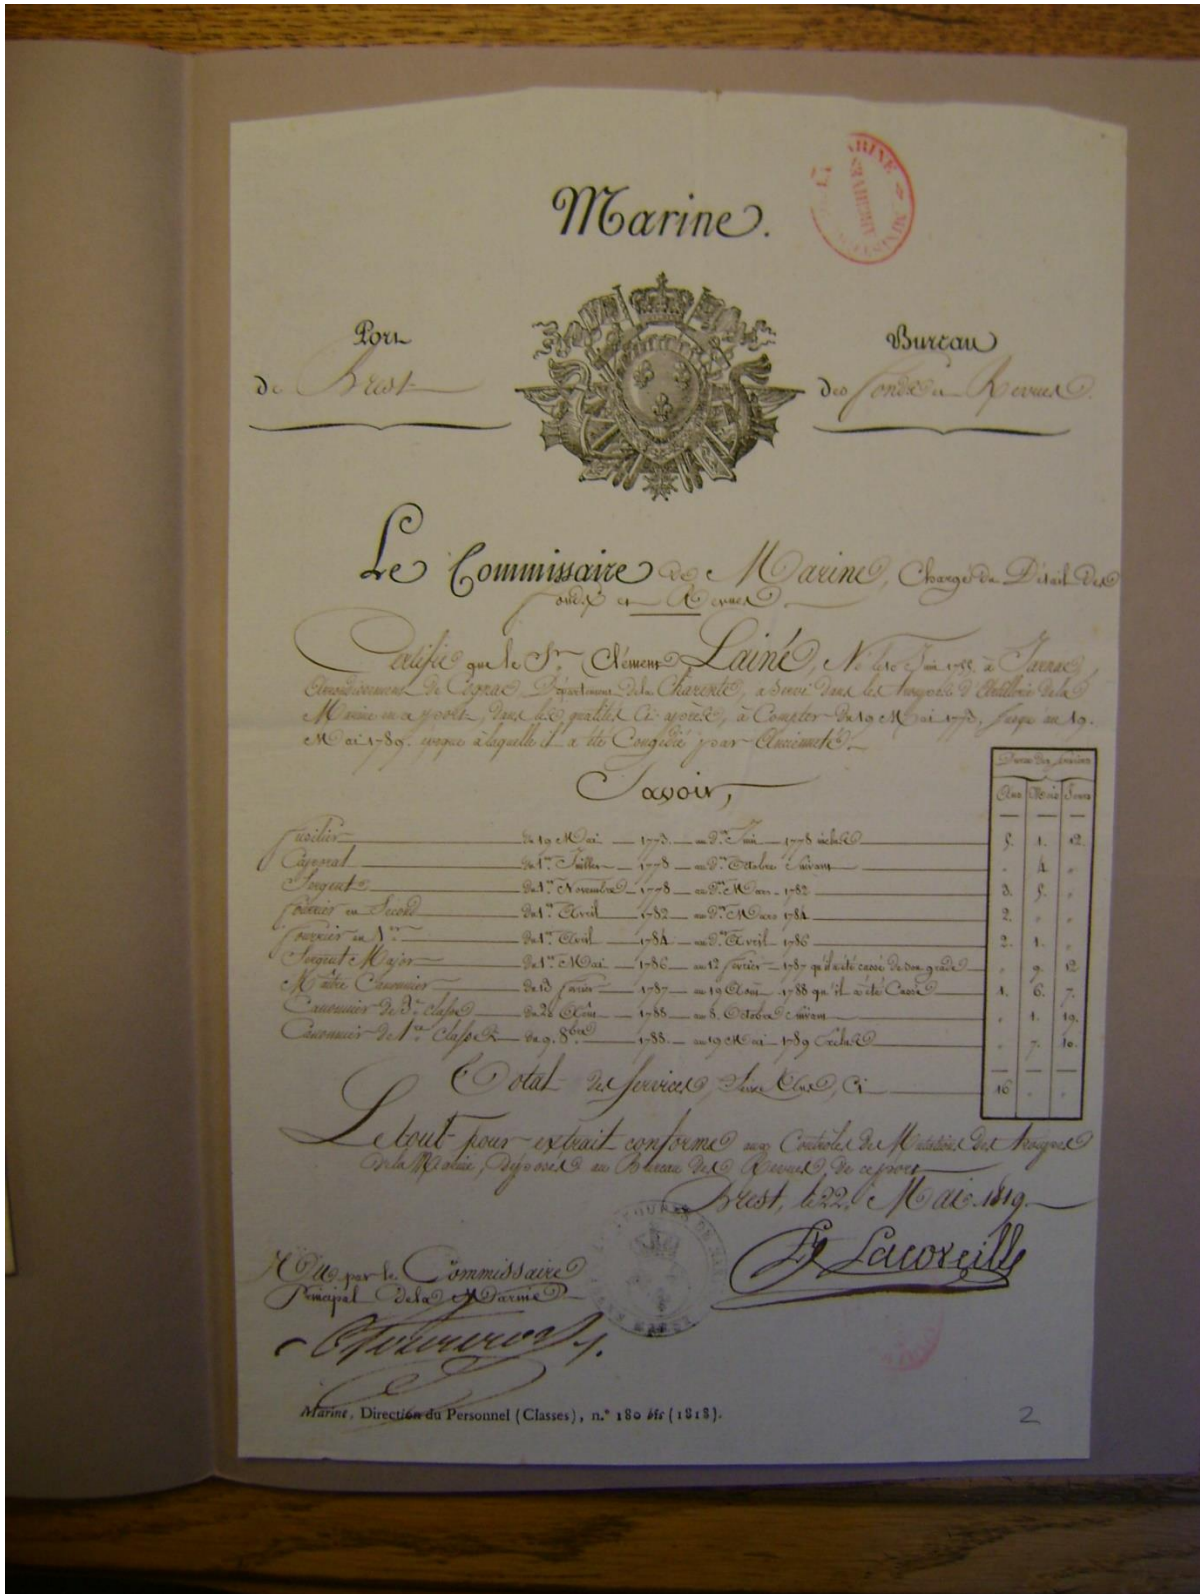 Marine.
MARINE
ARCHIVES
Port
de Brest
Bureau
des fonds et Revues.
Le Commissaire de Marine, Chargé du Détail des
fonds et Revues
Certifie que le Sr. Clément Lainé, Né le 10 Juin 1755 à Jarnac,
Arrondissement de Cognac, Département de la Charente, a Servi dans les troupes d'Artillerie de la
Marine en ce port, dans les qualités Ci-après, à Compter du 19 Mai 1773, jusqu'au 19.
Mai 1789. époque à laquelle il a été Congédié par Ancienneté.
Savoir,
Durée des Services
Ans Mois Jours
fusilier du 19 Mai 1773 au dr. Juin 1778 inclus 5. 1. 12.
Caporal du 1er. Juillet 1778 au dr. Octobre Suivant " 4 "
Sergent du 1er. Novembre 1778 au dr. Mars 1782 3. 5. "
fourrier en Second du 1er. Avril 1782 au dr. Mars 1784 2. " "
fourrier en 1er. du 1er. Avril 1784 au dr. Avril 1786 2. 1. "
Sergent Major du 1er. Mai 1786 au 12 février 1787 qu'il a été cassé de son grade " 9. 12
Maître Canonnier du 13 février 1787 au 19 Août 1788 qu'il a été Cassé 1. 6. 7.
Canonnier de 3e. classe du 20 Août 1788 au 8. Octobre suivant " 1. 19.
Canonnier de 1re. classe du 9. 8bre. 1788 au 19 Mai 1789 Exclus " 7. 10.
Total des Services, Seize Ans, Ci 16 " "
Le tout pour extrait conforme aux Contrôles des troupes
de la Marine, déposés au Bureau des Revues, de ce port
Brest, le 22. Mai 1819.
Lacoreille
Vu par le Commissaire
Principal de la Marine
Marine, Direction du Personnel (Classes), n.° 180 bis (1818).
2